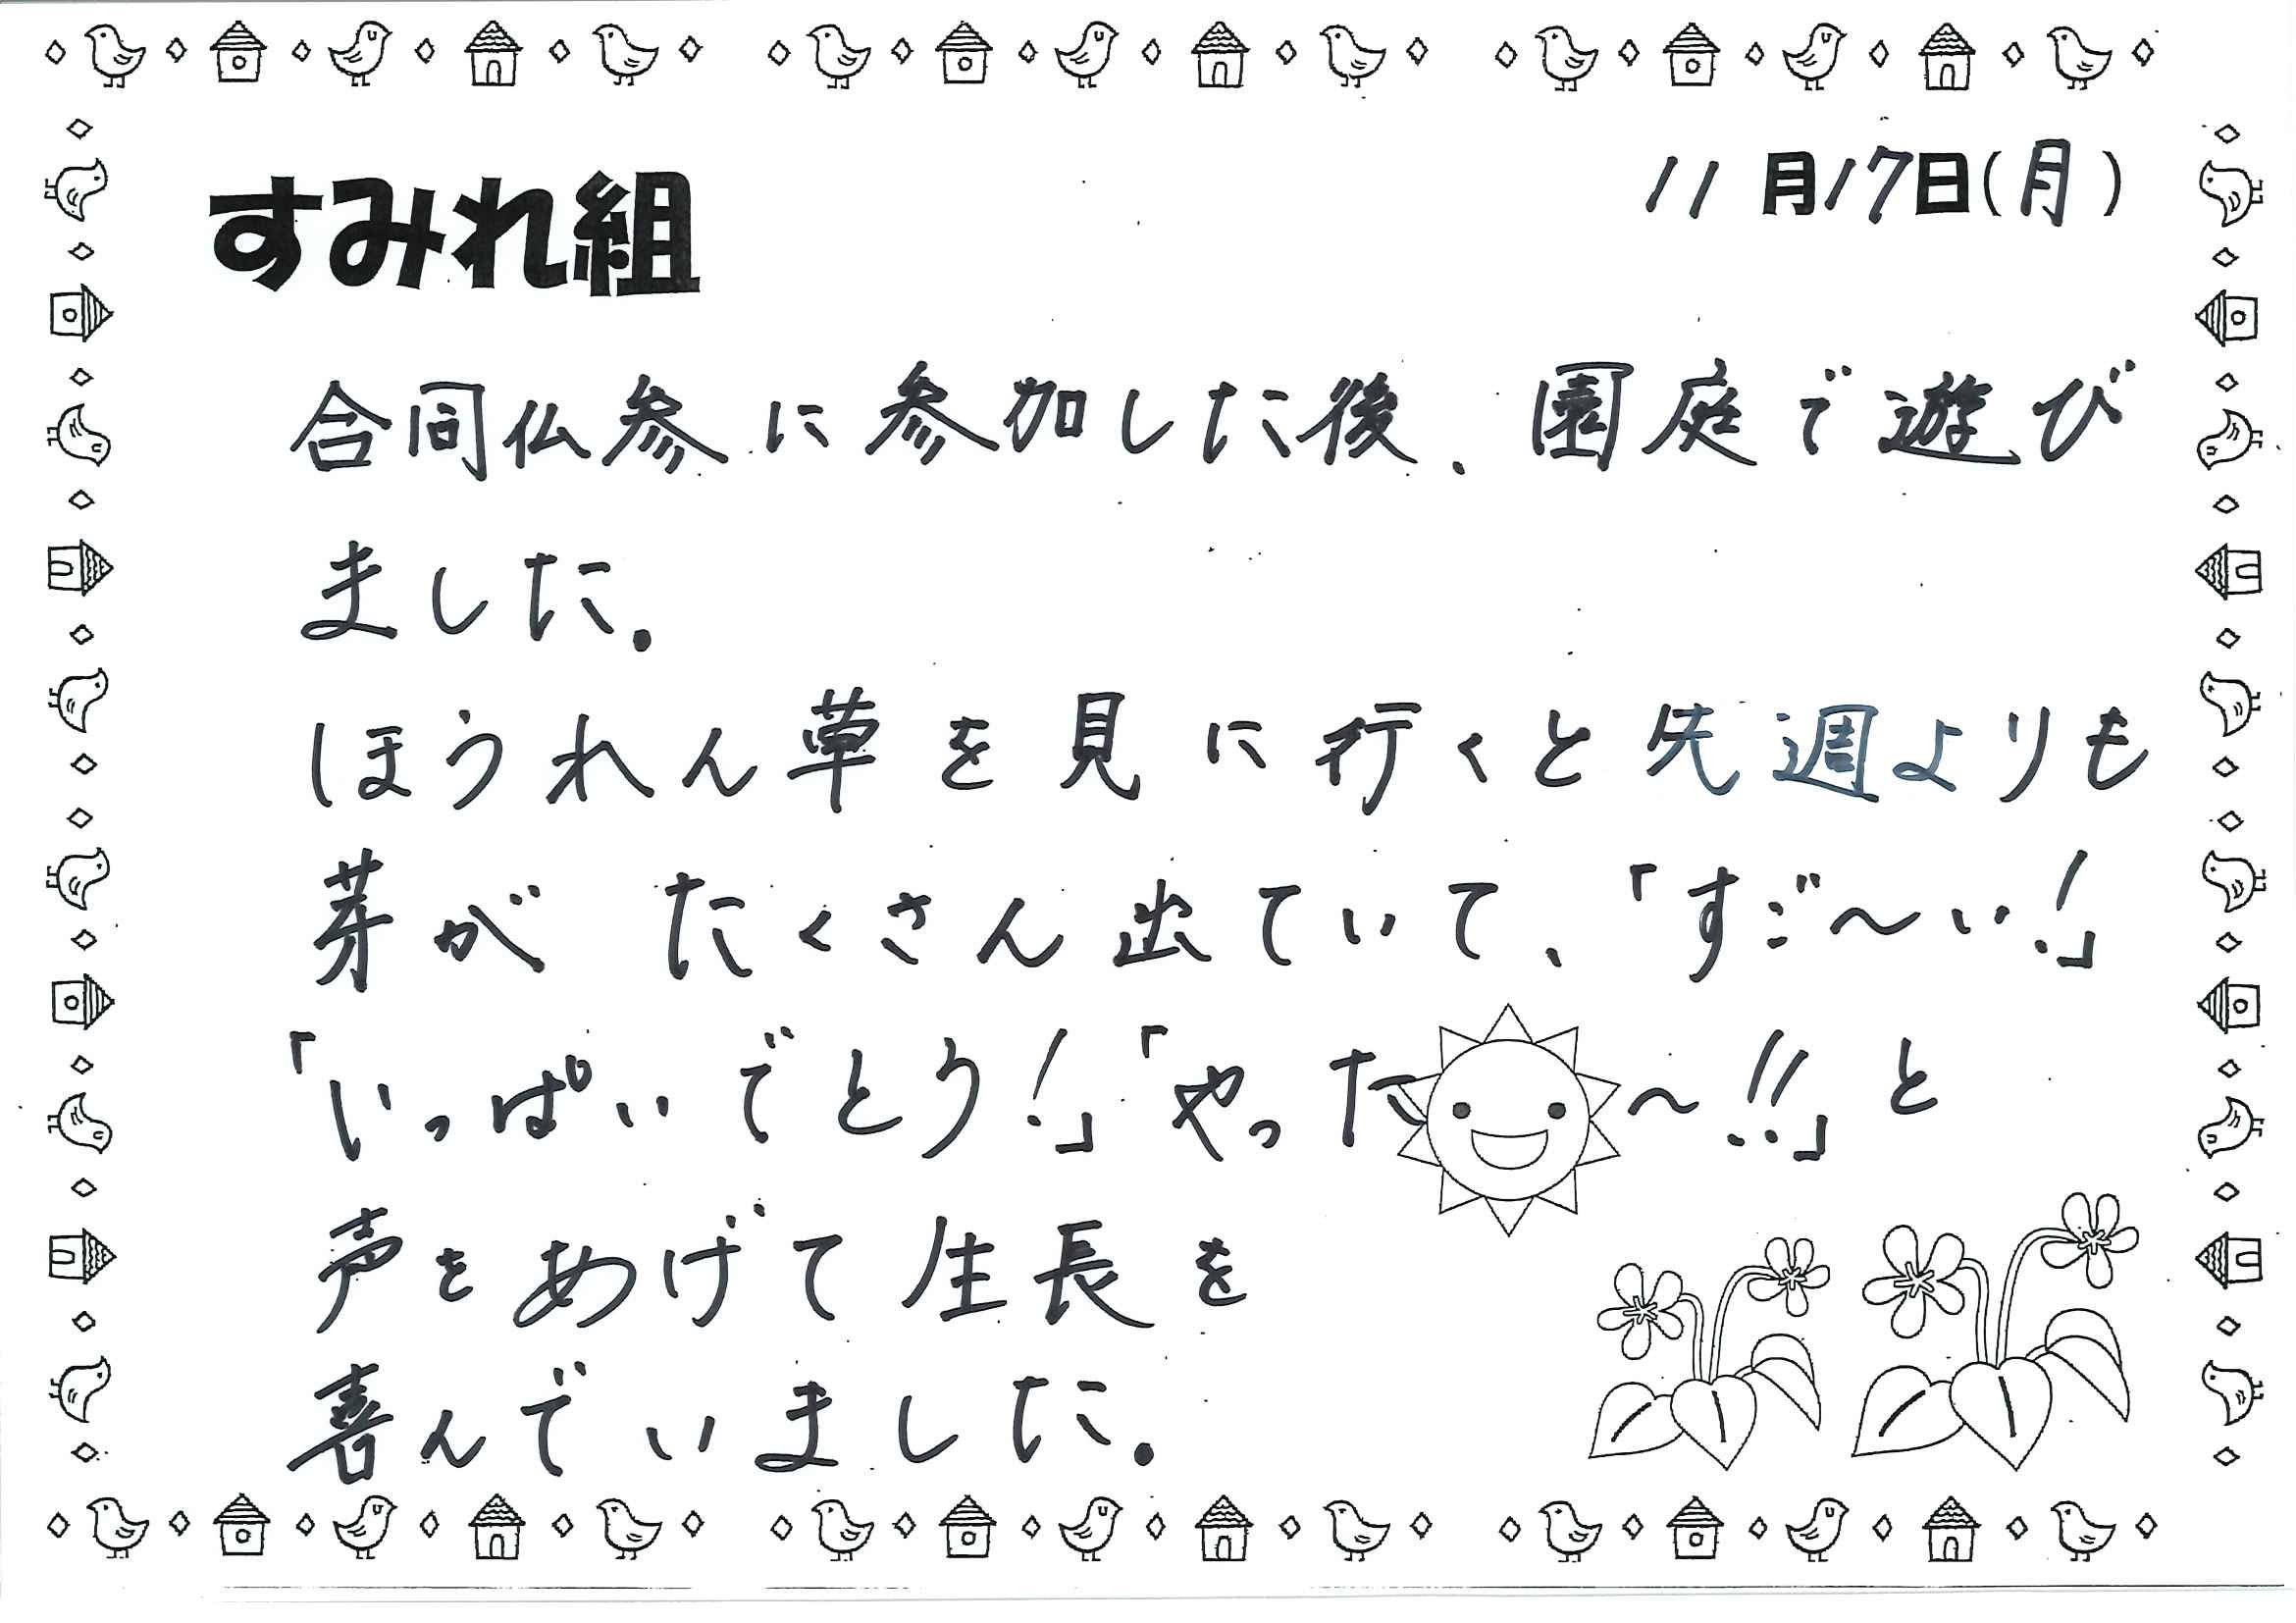 すみれ組
11月17日(月)
合同仏参に参加した後、園庭で遊び
ました。
ほうれん草を見に行くと先週よりも
芽がたくさん出ていて、「すご〜い!」
「いっぱいでとう!」「やった〜!!」と
声をあげて生長を
喜んでいました。